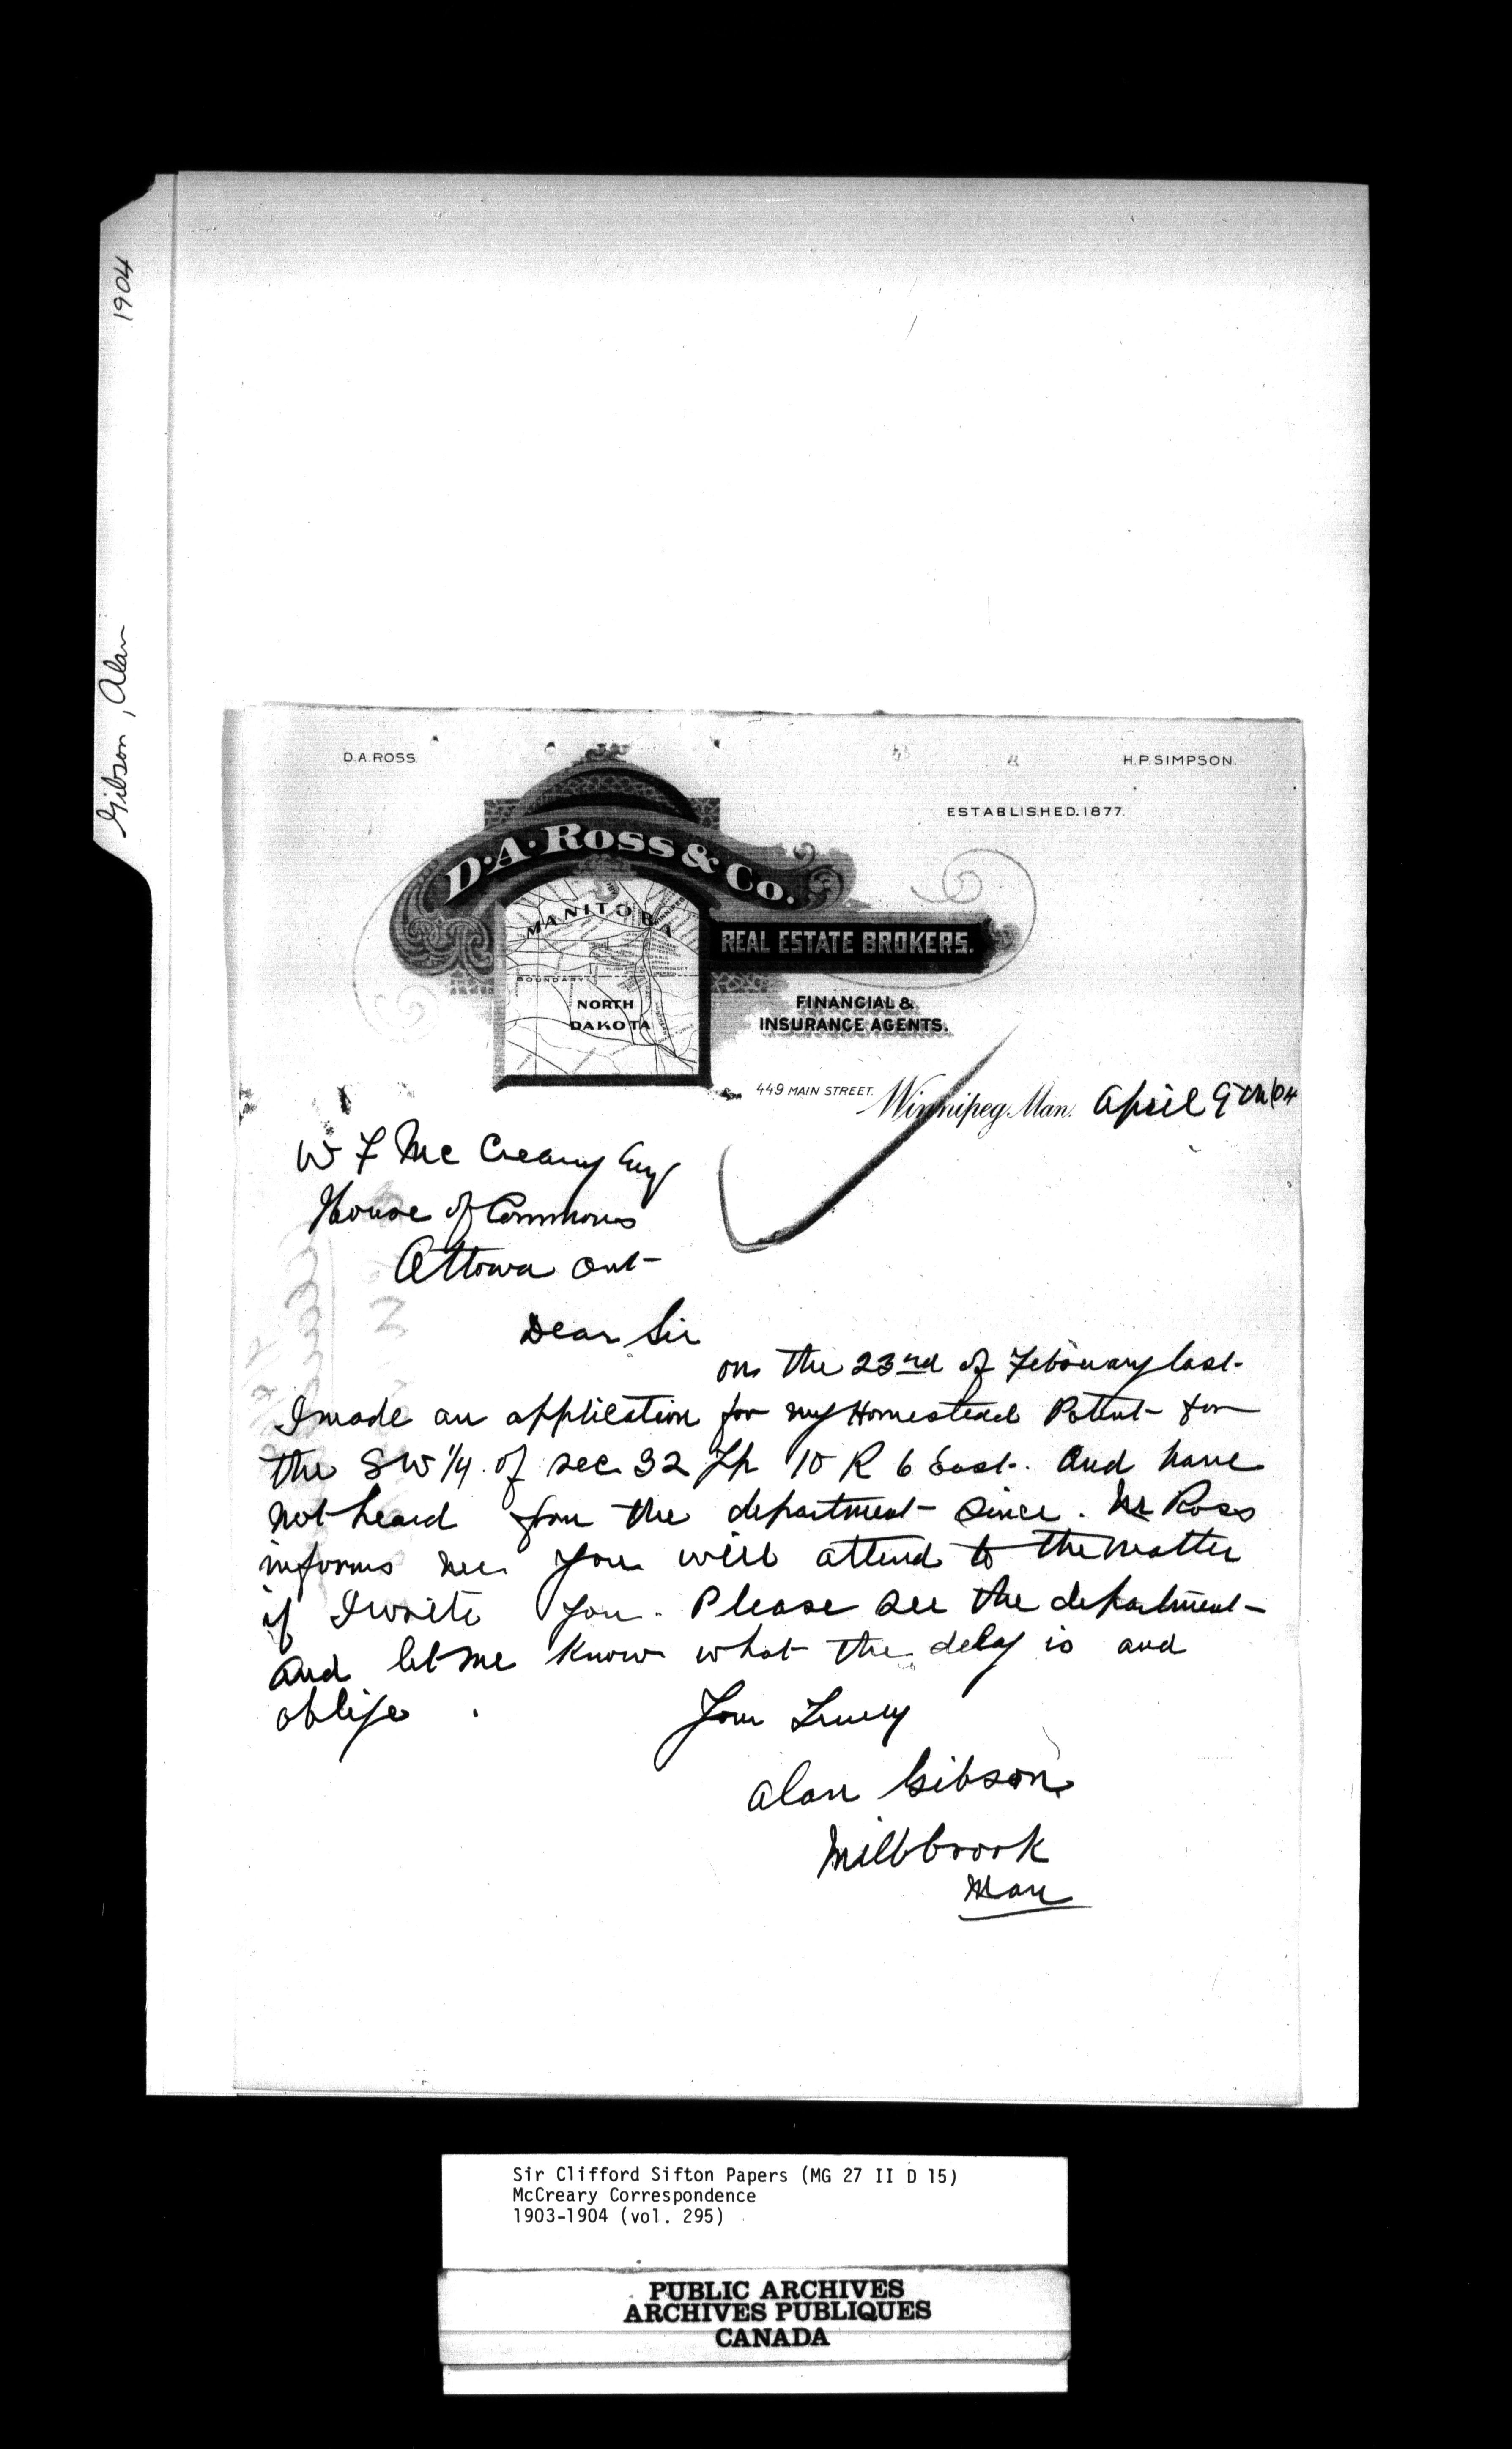 1904
Gibson, Alan
D.A. ROSS.
H.P. SIMPSON.
ESTABLISHED. 1877.
D. A. ROSS & CO.
REAL ESTATE BROKERS.
MANITOBA
WINNIPEG
BOUNDARY
NORTH
DAKOTA
FINANCIAL &
INSURANCE AGENTS.
449 MAIN STREET. Winnipeg, Man. April 9th/04
W F Mc Creary Esq
House of Commons
Ottowa Ont
Dear Sir
on the 23rd of Febuary last
I made an application for my Homestead Patent for
the SW 1/4 of sec 32 Tp 10 R 6 East. And have
not heard from the department since. Mr Ross
informs me you will attend to the matter
if I write you. Please see the department
and let me know what the delay is and
oblige.
Your Truely
Alan Gibson
Millbrook
Man
Sir Clifford Sifton Papers (MG 27 II D 15)
McCreary Correspondence
1903-1904 (vol. 295)
PUBLIC ARCHIVES
ARCHIVES PUBLIQUES
CANADA